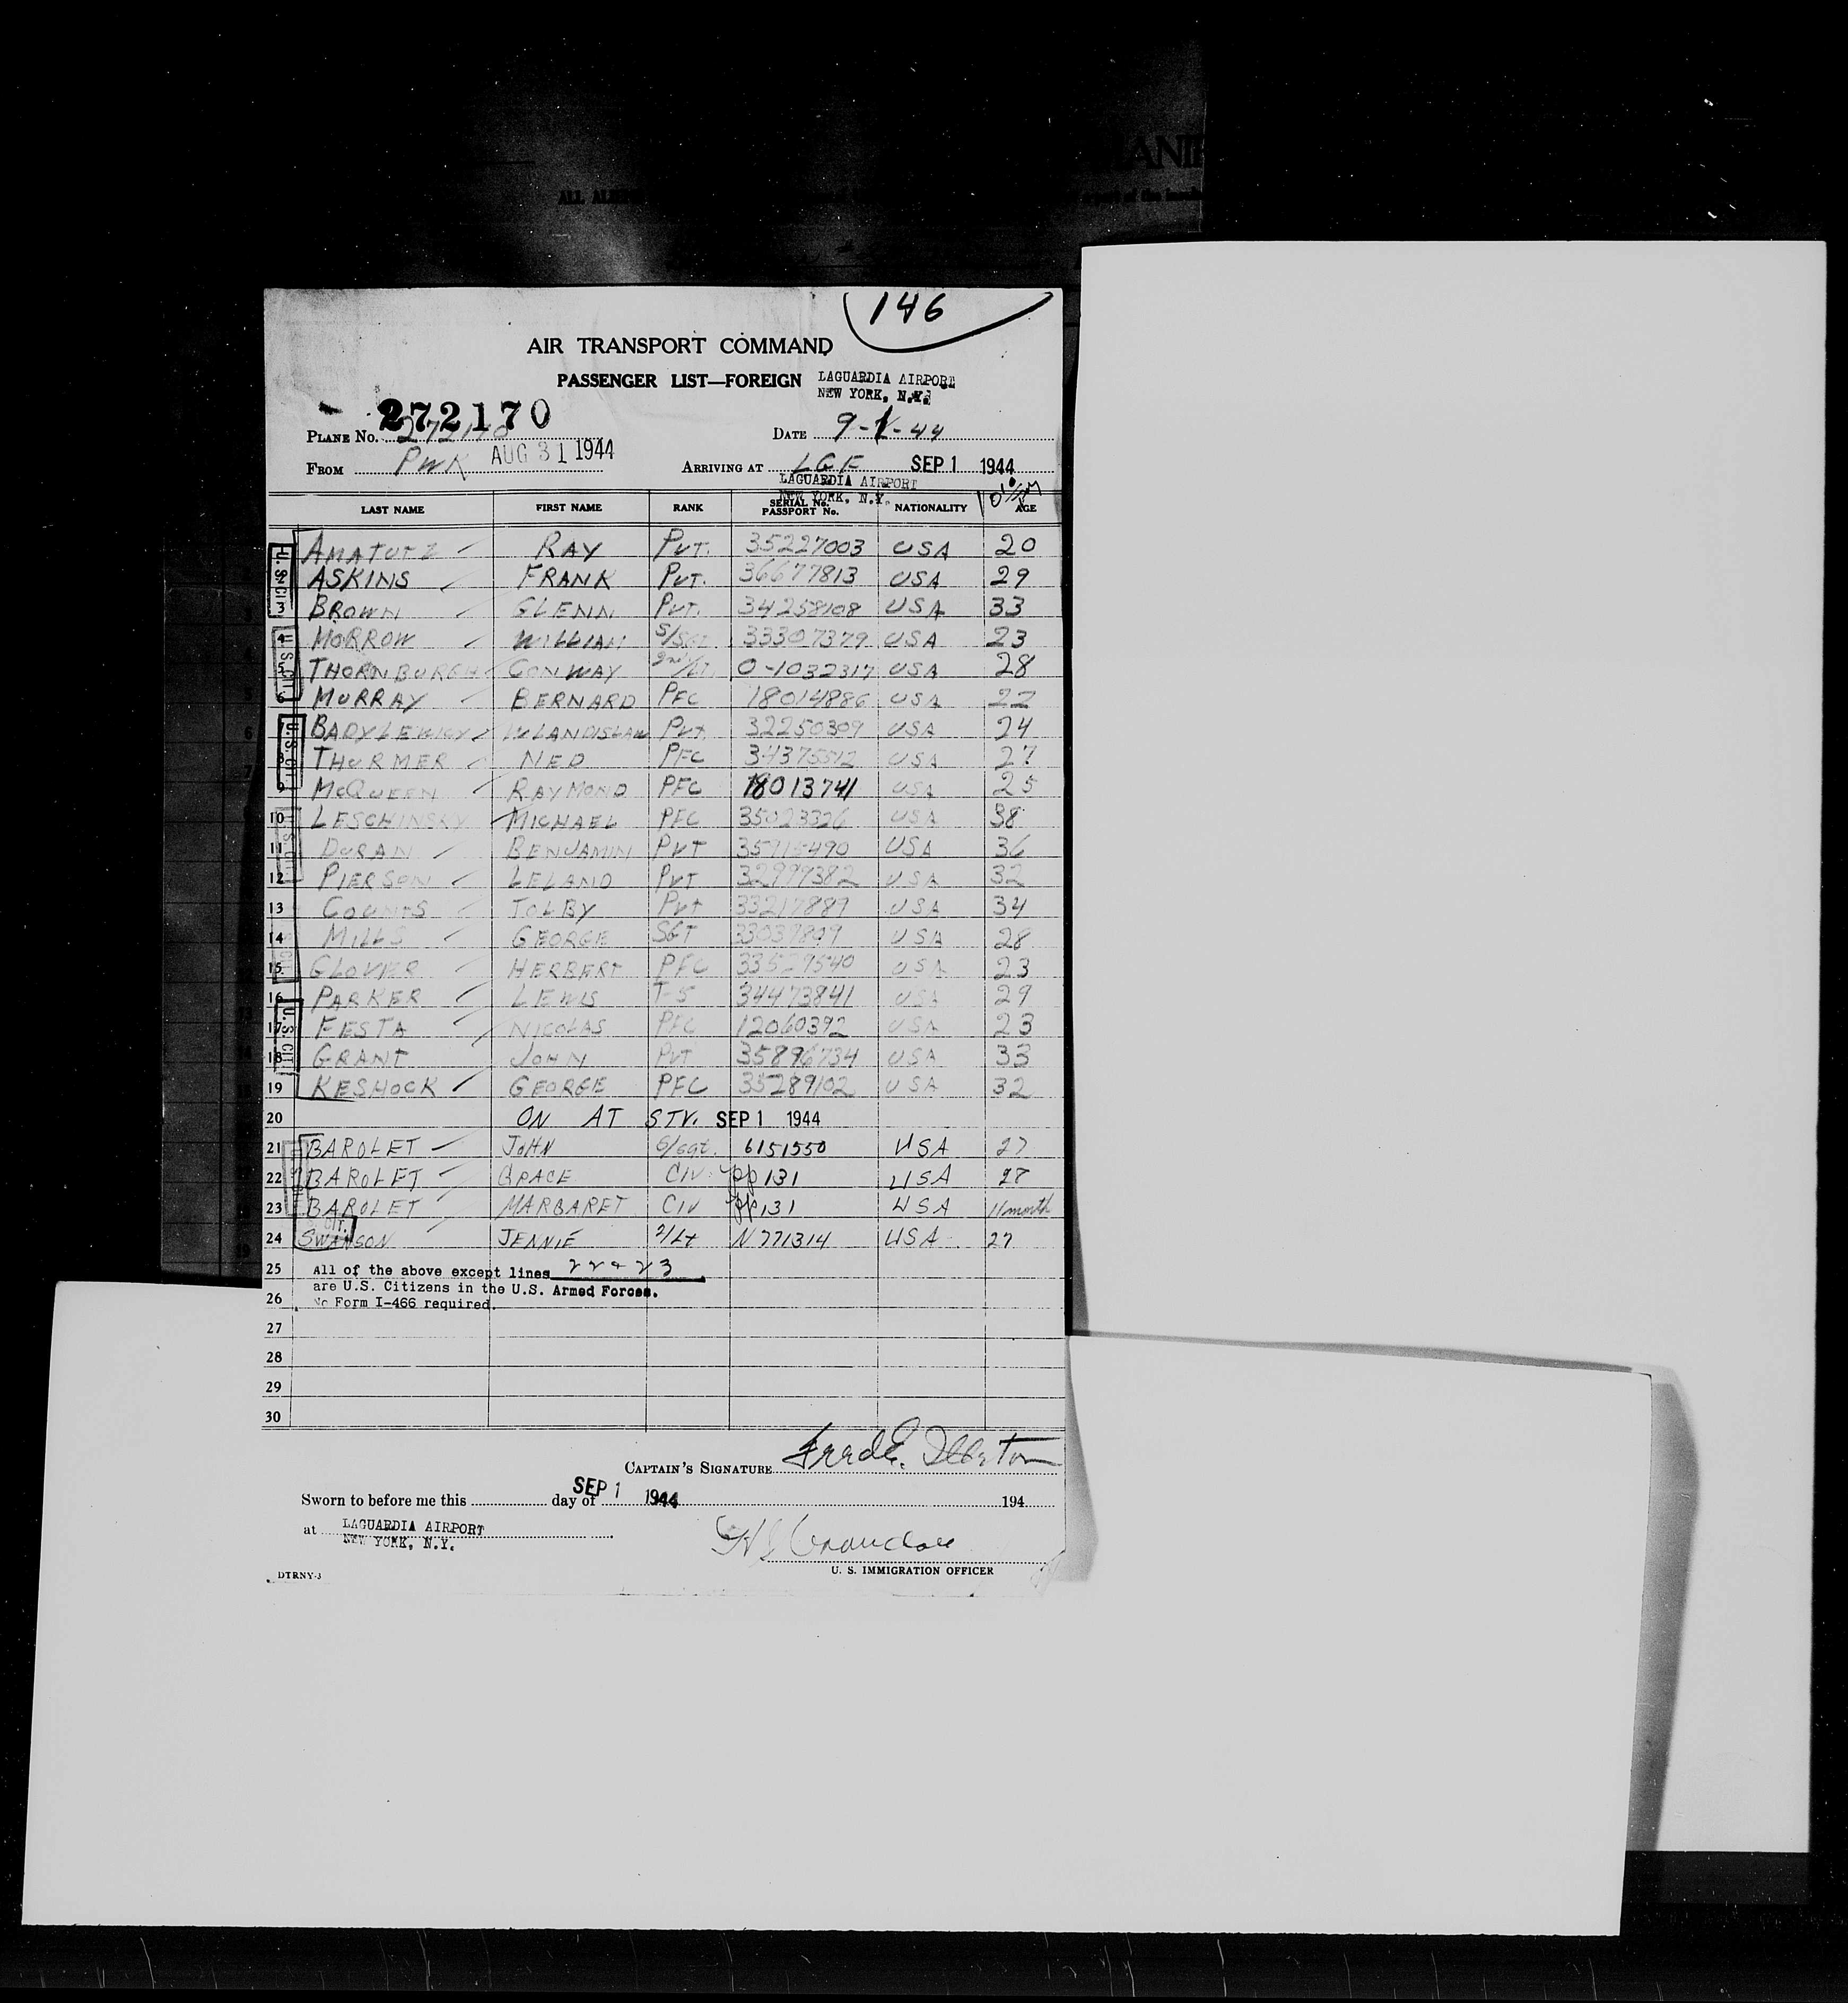 146
AIR TRANSPORT COMMAND
PASSENGER LIST—FOREIGN LAGUARDIA AIRPORT
NEW YORK, N.Y.
272170
PLANE NO. 272170 DATE 9-1-44
FROM PWK AUG 31 1944 ARRIVING AT LGF SEP 1 1944
LAGUARDIA AIRPORT
NEW YORK, N.Y.
LAST NAME FIRST NAME RANK SERIAL No. PASSPORT No. NATIONALITY AGE
AMATUTZ RAY PVT. 35227003 USA 20
ASKINS FRANK PVT. 36677813 USA 29
3 BROWN GLENN PVT. 34258108 USA 33
4 MORROW WILLIAM S/SGT 33307379 USA 23
5 THORNBURGH CONWAY 2nd/LT. 0-1032317 USA 28
6 MURRAY BERNARD PFC 18014886 USA 22
7 BADYLEWICY WLANDISLAW Pvt 32250309 USA 24
8 THURMER NED PFC 34375512 USA 27
9 McQUEEN RAYMOND PFC 18013741 USA 25
10 LESCHINSKY MICHAEL PFC 35023326 USA 38
11 DURAN BENJAMIN PVT 35715490 USA 36
12 PIERSON LELAND PVT 32999382 USA 32
13 COUNTS TOLBY Pvt 33217889 USA 34
14 MILLS GEORGE SGT 33039809 USA 28
15 GLOVIER HERBERT PFC 33529540 USA 23
16 PARKER LEWIS T-5 34473841 USA 29
17 FESTA NICOLAS PFC 12060392 USA 23
18 GRANT JOHN PVT 35896734 USA 33
19 KESHOCK GEORGE PFC 35289102 USA 32
20 ON AT STV. SEP 1 1944
21 BAROLET JOHN S/sgt. 6151550 USA 27
22 BAROLET GRACE CIV. pp 131 USA 28
23 BAROLET MARGARET CIV pp 131 USA 11 month
24 SWANSON JENNIE 2/Lt N 771314 USA 27
25 All of the above except lines 22 & 23
are U.S. Citizens in the U.S. Armed Forces.
26 No Form I-466 required.
27
28
29
30
CAPTAIN'S SIGNATURE Fred E.
Sworn to before me this day of SEP 1 1944 194
at LAGUARDIA AIRPORT
NEW YORK, N.Y.
U. S. IMMIGRATION OFFICER
DTRNY-3